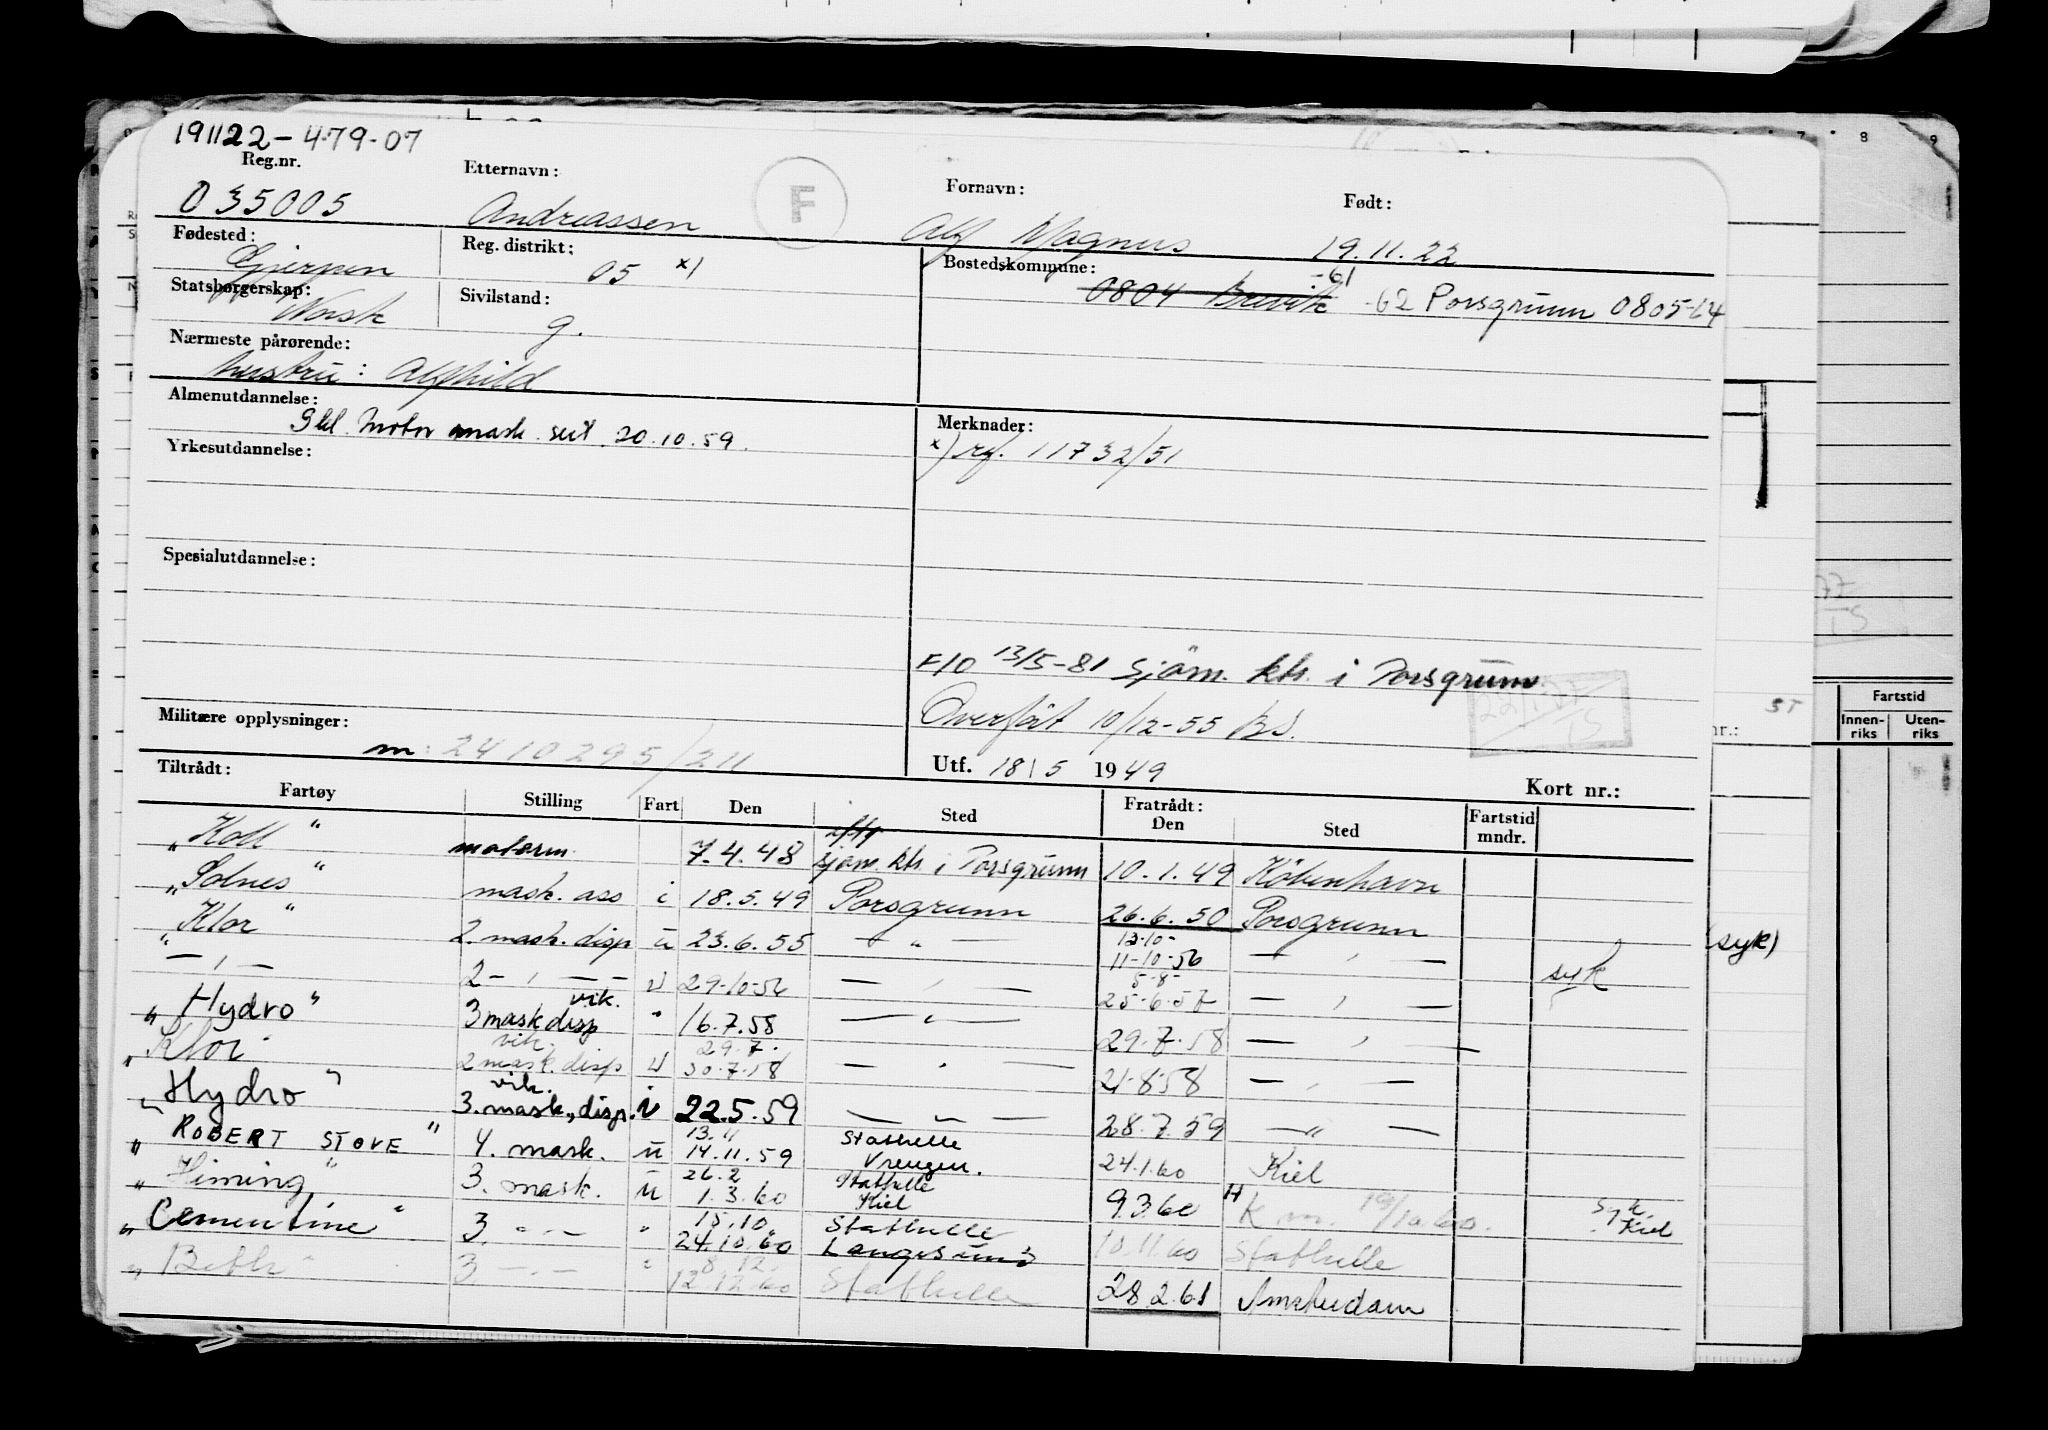 191122-479-07
Reg.nr. Etternavn: F Fornavn: Født:
035005 Andreassen Alf Magnus 19.11.22
Fødested: Gjerpen Reg. distrikt: 05 x) Bostedskommune: -61
0804 Brevik -62 Porsgrunn 0805-64
Statsborgerskap: Norsk Sivilstand: g.
Nærmeste pårørende:
hustru: Alfhild
Almenutdannelse: Merknader:
Gkl. motor mask. sert. 20.10.59. x) rf. 11732/51
Yrkesutdannelse:
Spesialutdannelse:
F/O 13/5-81 Sjøm. ktr. i Porsgrunn.
Overført 10/12-55 BS.
Militære opplysninger:
m: 2410295/211
Utf. 18/5 1949
Tiltrådt: Fratrådt: Kort nr.:
Fartøy Stilling Fart Den Sted Den Sted Fartstid mndr.
"Koll" motorm. 7.4.48 sjøm. ktr. i Porsgrunn 10.1.49 København
"Solnes" mask. ass i 18.5.49 Porsgrunn 26.6.50 Porsgrunn
"Klor" 2. mask. disp u 23.6.55 — " — 11-10-56 — " — syk
— " — 2 — " — — u 29-10-56 — " — 5-8- 25-6-57 — " —
"Hydro" 3 mask disp vik. " 16.7.58 — " — 29.7.58 — " —
"Klor" 2 mask. disp vik. u 29.7. 30.7.58 — " — 21-8-58 — " —
"Hydro" 3. mask. disp. vik. i 22.5.59 — " — 28.7.59 — " —
"ROBERT STOVE" 4. mask. u 13.11 14.11.59 Stathelle Vrengen. 24.1.60 Kiel
"Himing" 3. mask. u 26.2 1.3.60 Stathelle Kiel 9.3.60 K m. 19/10.60. Syk. Kiel
"Cementine" 3. — " — " 15.10. 24.10.60 Stathelle Langesund 10.11.60 Stathelle
"Beth" 3 — " — " 8.12. 12.12.60 Stathelle 28.2.61 Amsterdam
(syk)
nr.:
ST
7 8 9
Fartstid
Innenriks Utenriks